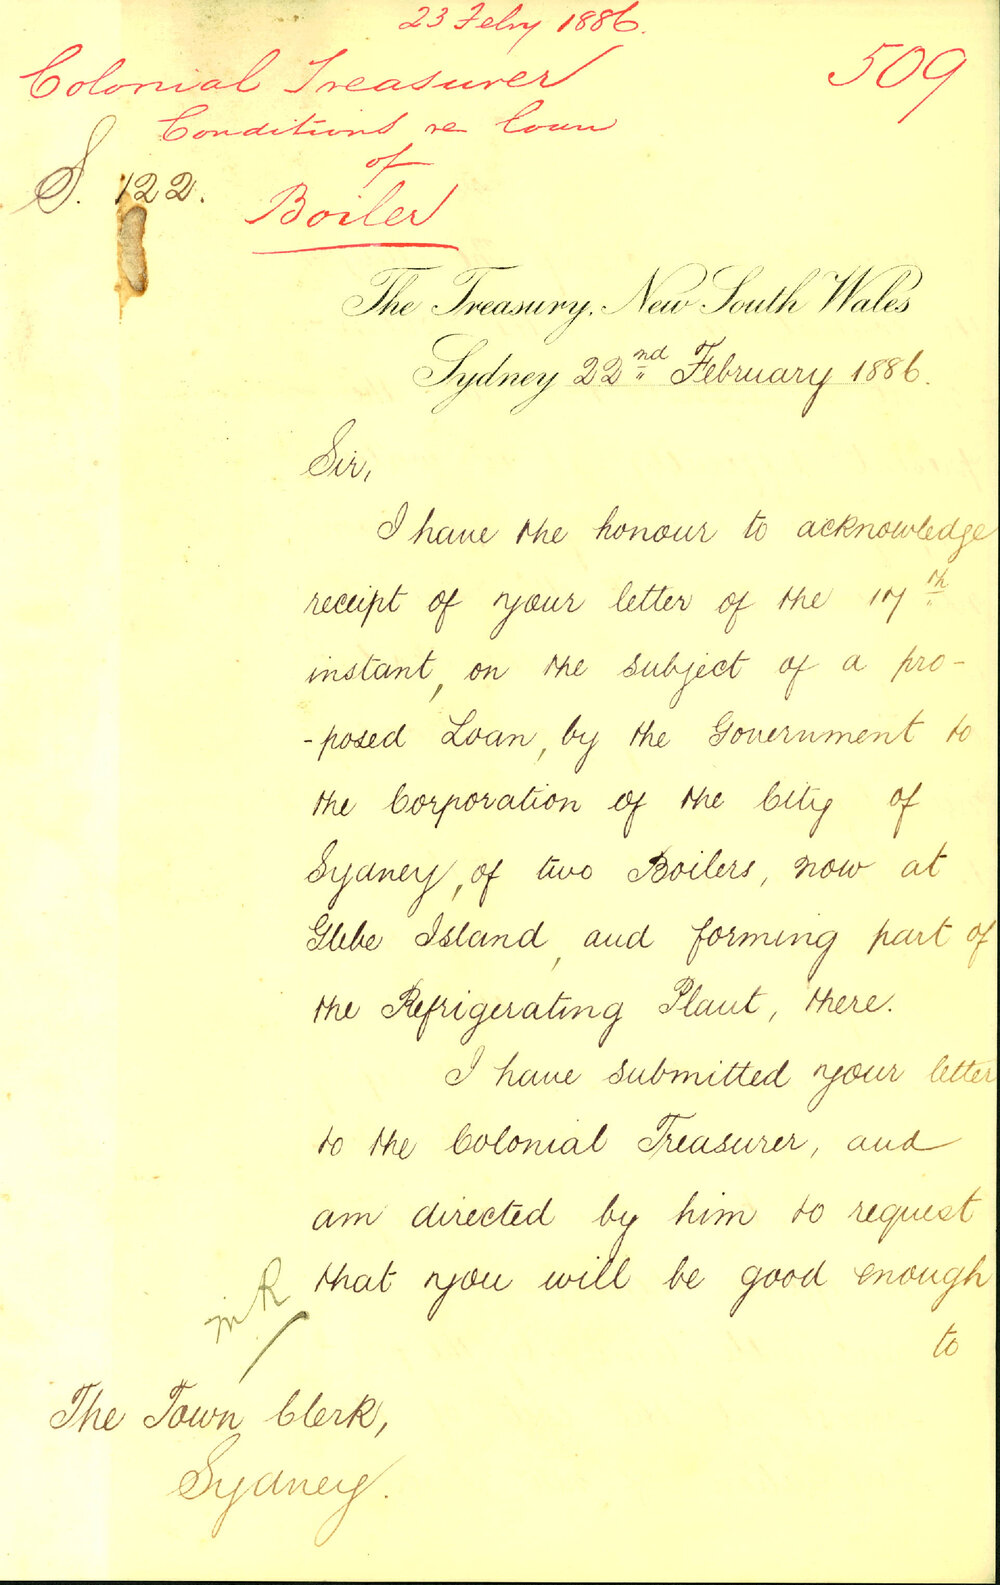 23 Feby 1886.
509
Colonial Treasurer
Conditions re Loan
of
Boiler
S. 122.
The Treasury, New South Wales
Sydney 22nd February 1886.
Sir,
I have the honour to acknowledge
receipt of your letter of the 17th
instant, on the subject of a pro-
-posed Loan, by the Government to
the Corporation of the City of
Sydney, of two Boilers, now at
Glebe Island, and forming part of
the Refrigerating Plant, there.
I have submitted your letter
to the Colonial Treasurer, and
am directed by him to request
that you will be good enough
to
The Town Clerk,
Sydney.